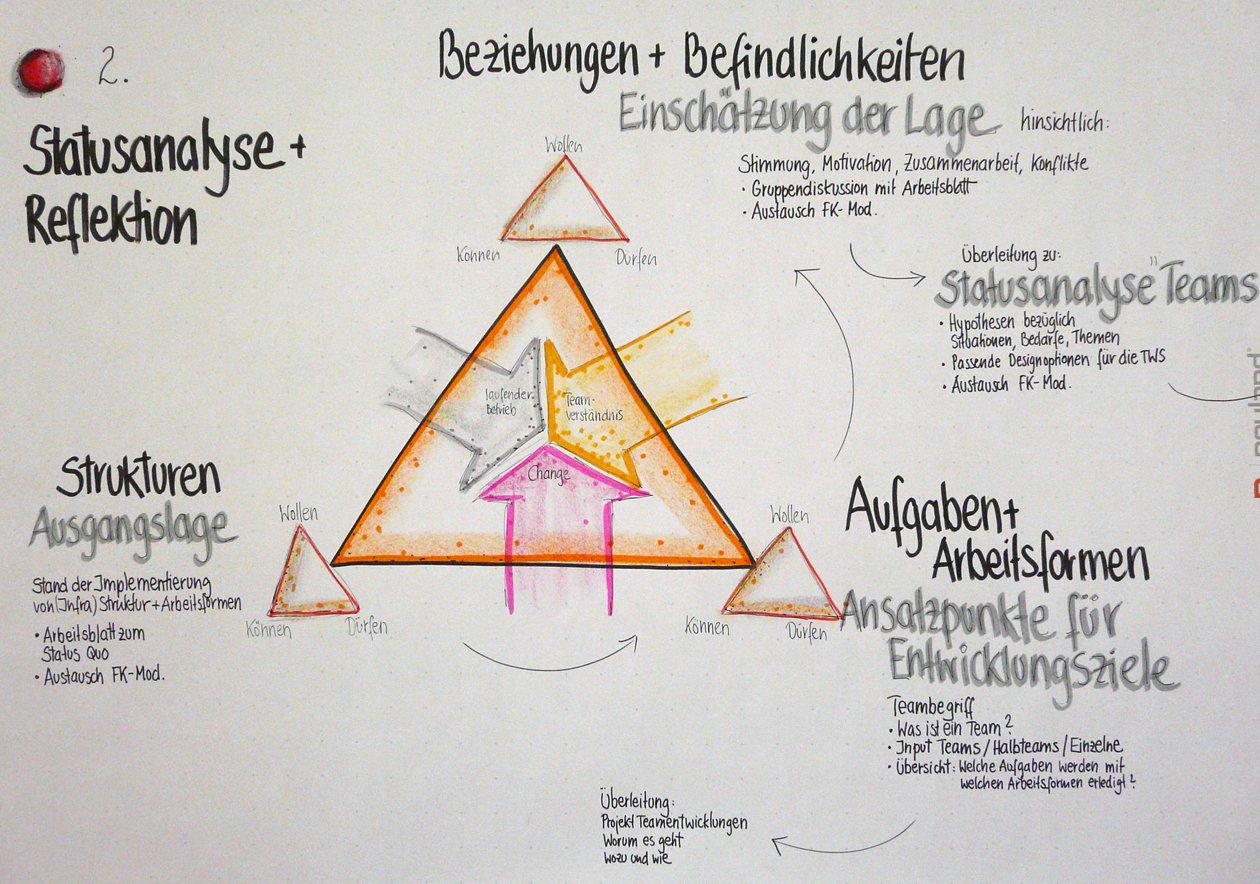 2.
Statusanalyse +
Reflektion
Beziehungen + Befindlichkeiten
Einschätzung der Lage hinsichtlich:
Stimmung, Motivation, Zusammenarbeit, Konflikte
• Gruppendiskussion mit Arbeitsblatt
• Austausch FK-Mod.
Wollen
Können
Dürfen
Überleitung zu:
Statusanalyse "Teams
• Hypothesen bezüglich
Situationen, Bedarfe, Themen
• Passende Designoptionen für die TWS
• Austausch FK-Mod.
laufender
Betrieb
Team-
verständnis
Change
Strukturen
Ausgangslage
Stand der Implementierung
von (Infra) Struktur + Arbeitsformen
• Arbeitsblatt zum
Status Quo
• Austausch FK-Mod.
Wollen
Können
Dürfen
Wollen
Können
Dürfen
Aufgaben +
Arbeitsformen
Ansatzpunkte für
Entwicklungsziele
Teambegriff
• Was ist ein Team?
• Input Teams / Halbteams / Einzelne
• Übersicht: Welche Aufgaben werden mit
welchen Arbeitsformen erledigt?
Überleitung:
Projekt Teamentwicklungen
Worum es geht
Wozu und wie